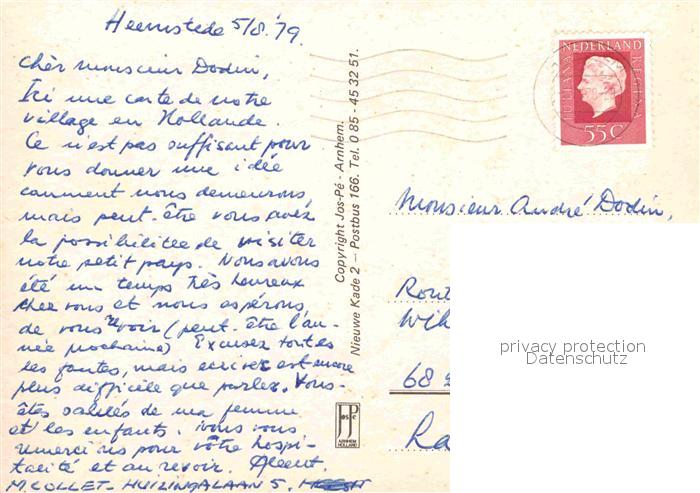 Heemstede 5/8 '79
Chèr monsieur Dodin,
Ici une carte de notre
village en Hollande.
Ce n'est pas suffisant pour
vous donner une idée
comment nous demeurons,
mais peut-être vous avez
la possibilitee de visiter
notre petit pays. Nous avons
été un temps très heureux
chez vous et nous espérons,
de vous revoir (peut-être l'an-
née prochaine) Excusez toutes
les fautes, mais ecrire est encore
plus difficile que parler. Vous-
êtes salués de ma femme
et les enfants. Nous vous
remercions pour vôtre hospi-
talité et au revoir.
M. COLLET - HUIZINGALAAN 5.
Copyright Jos-Pé - Arnhem.
Nieuwe Kade 2 – Postbus 166. Tel. 0 85 - 45 32 51.
Jos Pé
ARNHEM
HOLLAND
NEDERLAND
JULIANA REGINA
55c
Monsieur André Dodin,
Rout
Wih
68
Ra
privacy protection
Datenschutz